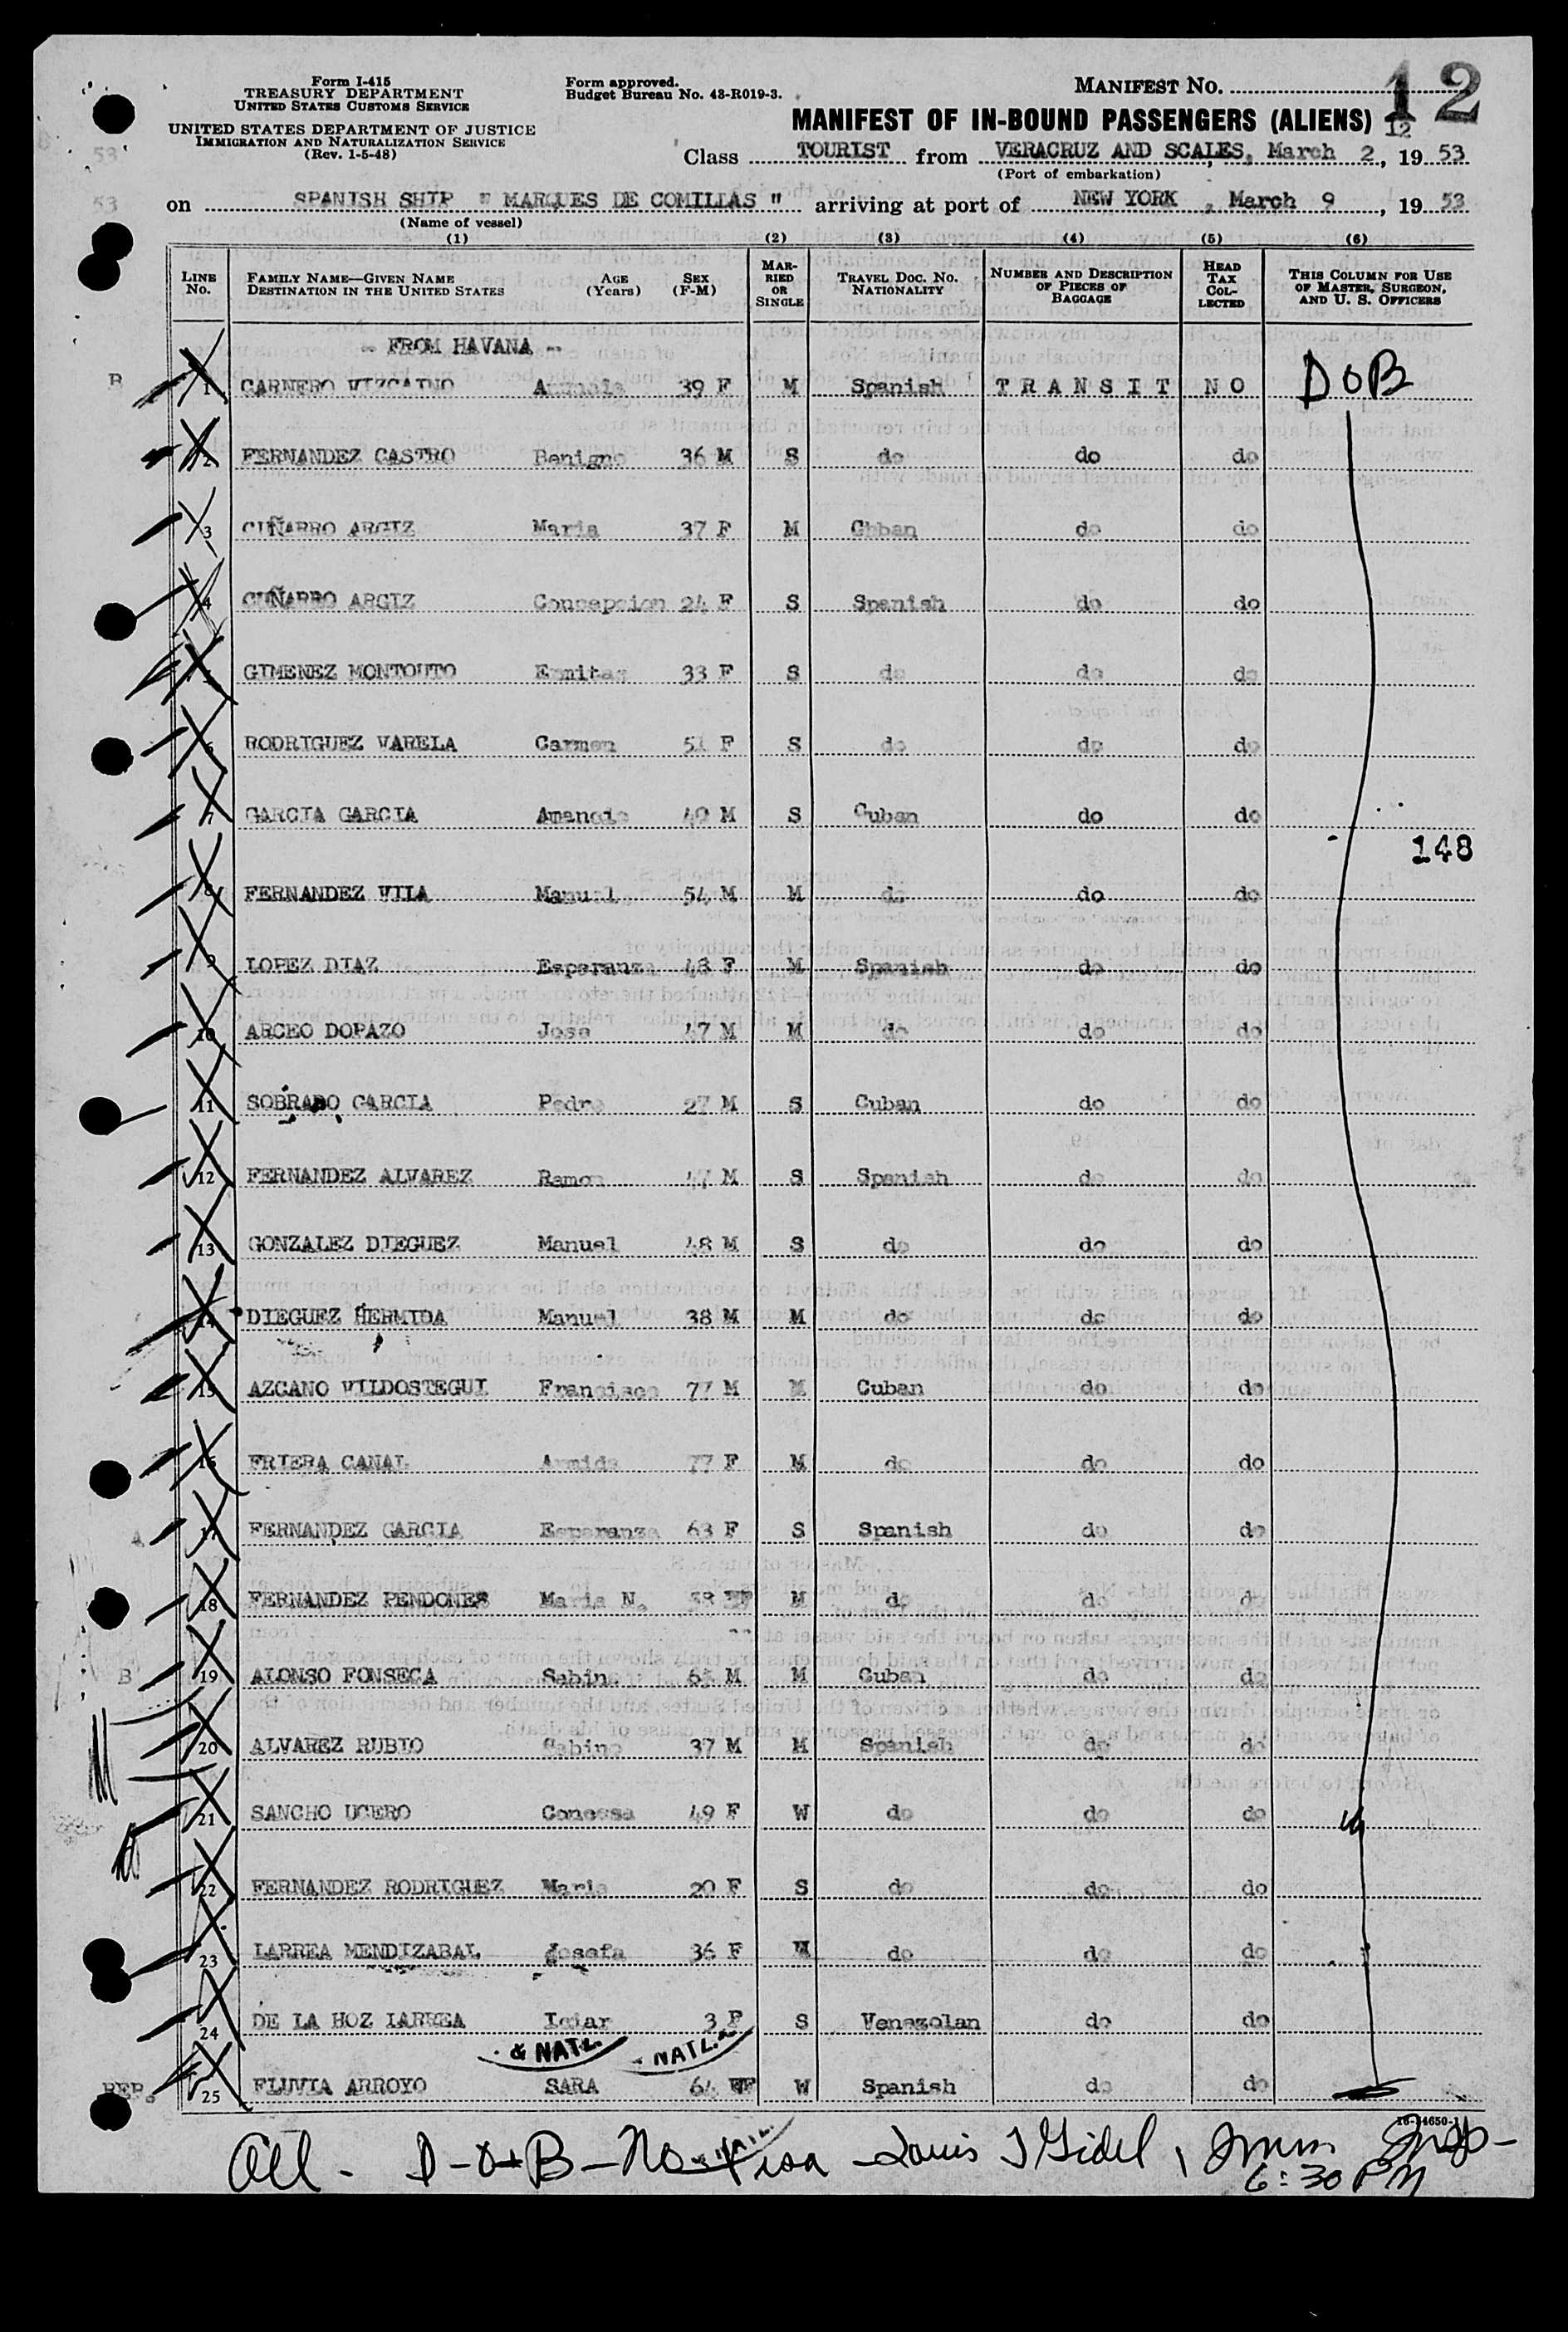 Form I-415
TREASURY DEPARTMENT
UNITED STATES CUSTOMS SERVICE
UNITED STATES DEPARTMENT OF JUSTICE
IMMIGRATION AND NATURALIZATION SERVICE
(Rev. 1-5-48)
Form approved.
Budget Bureau No. 43-R019-3.
MANIFEST No. 12
MANIFEST OF IN-BOUND PASSENGERS (ALIENS) 12
Class TOURIST from VERACRUZ AND SCALES, March 2, 1953
(Port of embarkation)
on SPANISH SHIP " MARQUES DE COMILLAS " arriving at port of NEW YORK, March 9, 1953
(Name of vessel)
(1) (2) (3) (4) (5) (6)
LINE No. FAMILY NAME—GIVEN NAME DESTINATION IN THE UNITED STATES AGE (Years) SEX (F-M) MARRIED OR SINGLE TRAVEL DOC. NO. NATIONALITY NUMBER AND DESCRIPTION OF PIECES OF BAGGAGE HEAD TAX COLLECTED THIS COLUMN FOR USE OF MASTER, SURGEON, AND U. S. OFFICERS
- FROM HAVANA -
B 1 CARNERO VIZCAINO 39 F M Spanish TRANSIT NO DOB
2 FERNANDEZ CASTRO Benigno 36 M S do do do
3 CIÑARRO ARGIZ Maria 37 F M Cuban do do
4 CUÑARRO ARGIZ Concepcion 24 F S Spanish do do
5 GIMENEZ MONTOUTO 33 F S do do do
6 RODRIGUEZ VARELA Carmen 51 F S do do do
7 GARCIA GARCIA Amancio 40 M S Cuban do do
148
8 FERNANDEZ VILA Manuel 54 M M do do do
9 LOPEZ DIAZ Esperanza 48 F M Spanish do do
10 ARCEO DOPAZO Jose 47 M M do do do
11 SOBRADO GARCIA Pedro 27 M S Cuban do do
12 FERNANDEZ ALVAREZ Ramon 47 M S Spanish do do
13 GONZALEZ DIEGUEZ Manuel 48 M S do do do
14 DIEGUEZ HERMIDA Manuel 38 M M do do do
15 AZCANO VILDOSTEGUI Francisco 77 M M Cuban do do
16 FRIERA CANAL Armida 77 F M do do do
A 17 FERNANDEZ GARCIA Esperanza 63 F S Spanish do do
18 FERNANDEZ PENDONES Maria N. 58 F M do do do
B 19 ALONSO FONSECA Sabino 65 M M Cuban do do
20 ALVAREZ RUBIO Sabino 37 M M Spanish do do
21 SANCHO UCERO Concesa 49 F W do do do
22 FERNANDEZ RODRIGUEZ Maria 20 F S do do do
23 LARREA MENDIZABAL Josefa 36 F W do do do
24 DE LA HOZ LARREA Iciar 3 F S Venezolan do do
& NATL. NATL.
REP. 25 FLUVIA ARROYO SARA 64 F W Spanish do do
16-54650-1
All - D-O-B - No Visa - Louis J Gidel, Imm Insp -
6:30 PM